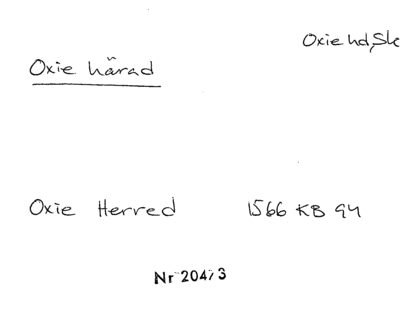 Oxie hd, Sk
Oxie härad
Oxie Herred 1566 KB 94
Nr 20473